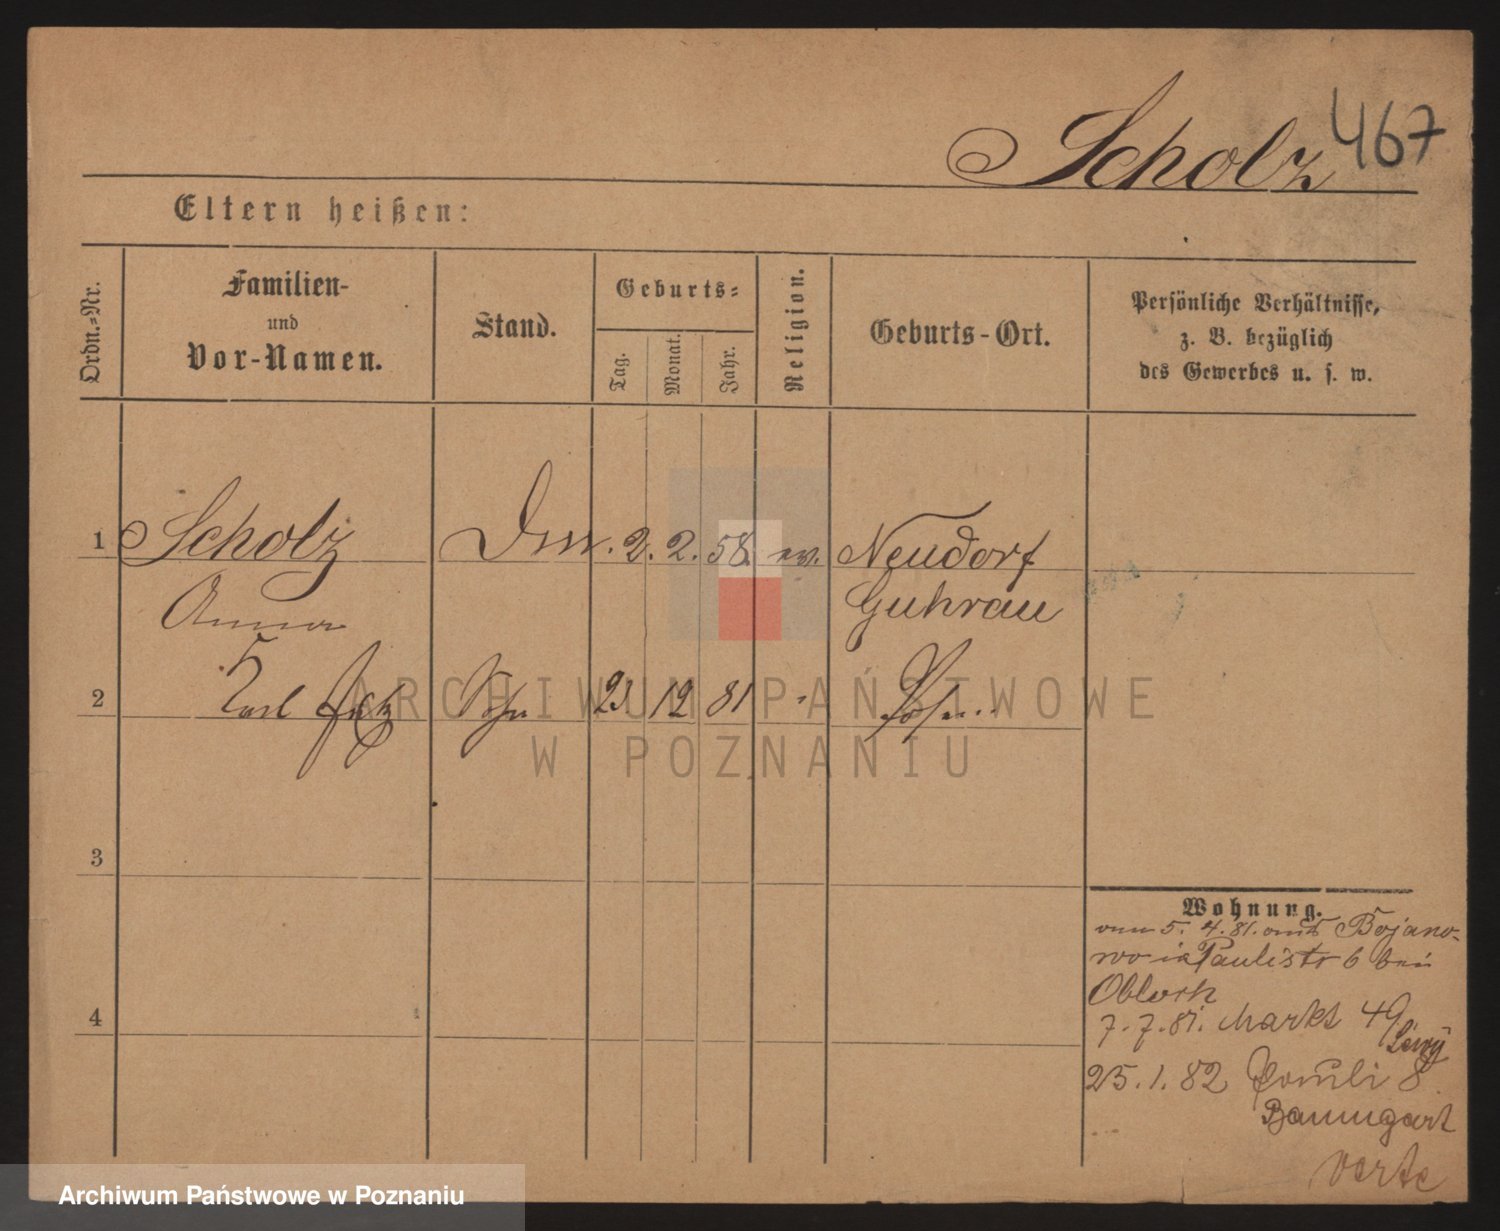 Scholz 467
Eltern heißen:
Ordn.=Nr.
Familien-
und
Vor-Namen.
Stand.
Geburts=
Tag.
Monat.
Jahr.
Religion.
Geburts-Ort.
Persönliche Verhältnisse,
z. B. bezüglich
des Gewerbes u. s. w.
1 Scholz 2. 2. 58. ev. Neudorf
Anna Guhrau
2 Karl Sohn 23 12 81 Posen
3
4
Wohnung.
vom 5. 4. 81. aus Bojano-
wo in Paulistr 6 bei
7. 7. 81. Markt 49
Levy
25. 1. 82 Pauli 8
Baumgart
verte
ARCHIWUM PAŃSTWOWE
W POZNANIU
Archiwum Państwowe w Poznaniu